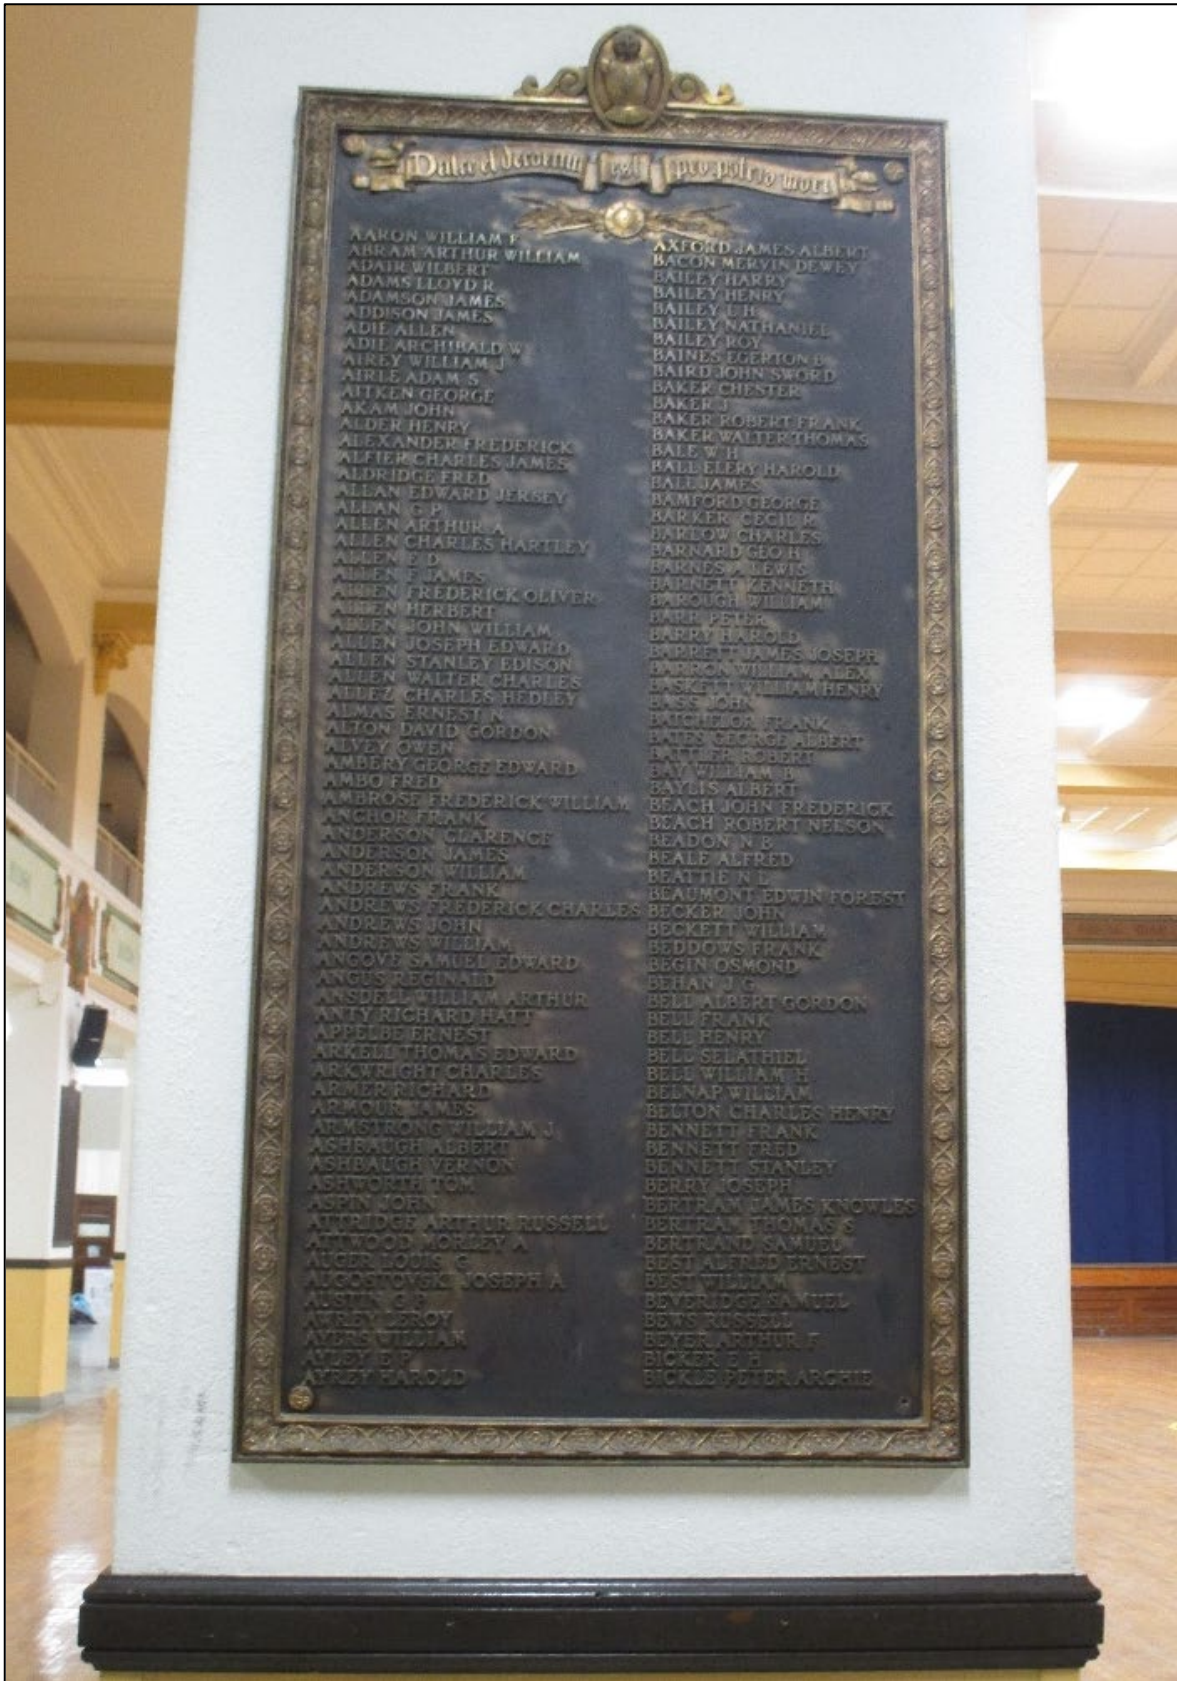 Dulce et decorum est pro patria mori
AARON WILLIAM F
ABRAM ARTHUR WILLIAM
ADAIR WILBERT
ADAMS LLOYD R
ADAMSON JAMES
ADDISON JAMES
ADIE ALLEN
ADIE ARCHIBALD W
AIREY WILLIAM J
AIRLE ADAM S
AITKEN GEORGE
AKAM JOHN
ALDER HENRY
ALEXANDER FREDERICK
ALFIER CHARLES JAMES
ALDRIDGE FRED
ALLAN EDWARD JERSEY
ALLAN G P
ALLEN ARTHUR A
ALLEN CHARLES HARTLEY
ALLEN E D
ALLEN F JAMES
ALLEN FREDERICK OLIVER
ALLEN HERBERT
ALLEN JOHN WILLIAM
ALLEN JOSEPH EDWARD
ALLEN STANLEY EDISON
ALLEN WALTER CHARLES
ALLEZ CHARLES HEDLEY
ALMAS ERNEST N
ALTON DAVID GORDON
ALVEY OWEN
AMBERY GEORGE EDWARD
AMBO FRED
AMBROSE FREDERICK WILLIAM
ANCHOR FRANK
ANDERSON CLARENCE
ANDERSON JAMES
ANDERSON WILLIAM
ANDREWS FRANK
ANDREWS FREDERICK CHARLES
ANDREWS JOHN
ANDREWS WILLIAM
ANGOVE SAMUEL EDWARD
ANGUS REGINALD
ANSDELL WILLIAM ARTHUR
ANTY RICHARD HATT
APPELBE ERNEST
ARKELL THOMAS EDWARD
ARKWRIGHT CHARLES
ARMER RICHARD
ARMOUR JAMES
ARMSTRONG WILLIAM J
ASHBAUGH ALBERT
ASHBAUGH VERNON
ASHWORTH TOM
ASPIN JOHN
ATTRIDGE ARTHUR RUSSELL
ATTWOOD MORLEY A
AUGER LOUIS G
AUGOSTOVSKI JOSEPH A
AUSTIN G H
AWREY LEROY
AYERS WILLIAM
AYLEY E P
AYREY HAROLD
AXFORD JAMES ALBERT
BACON MERVIN DEWEY
BAILEY HARRY
BAILEY HENRY
BAILEY L H
BAILEY NATHANIEL
BAILEY ROY
BAINES EGERTON B
BAIRD JOHN SWORD
BAKER CHESTER
BAKER J
BAKER ROBERT FRANK
BAKER WALTER THOMAS
BALE W H
BALL ELERY HAROLD
BALL JAMES
BAMFORD GEORGE
BARKER CECIL R
BARLOW CHARLES
BARNARD GEO H
BARNES A LEWIS
BARNETT KENNETH
BAROUGH WILLIAM
BARR PETER
BARRY HAROLD
BARRETT JAMES JOSEPH
BARRON WILLIAM ALEX
BASKETT WILLIAM HENRY
BASS JOHN
BATCHELOR FRANK
BATES GEORGE ALBERT
ROBERT
BAY WILLIAM B
BAYLIS ALBERT
BEACH JOHN FREDERICK
BEACH ROBERT NELSON
BEADON N B
BEALE ALFRED
BEATTIE N L
BEAUMONT EDWIN FOREST
BECKER JOHN
BECKETT WILLIAM
BEDDOWS FRANK
BEGIN OSMOND
BEHAN J G
BELL ALBERT GORDON
BELL FRANK
BELL HENRY
BELL SELATHIEL
BELL WILLIAM H
BELNAP WILLIAM
BELTON CHARLES HENRY
BENNETT FRANK
BENNETT FRED
BENNETT STANLEY
BERRY JOSEPH
BERTRAM JAMES KNOWLES
BERTRAM THOMAS S
BERTRAND SAMUEL
BEST ALFRED ERNEST
BEST WILLIAM
BEVERIDGE SAMUEL
BEWS RUSSELL
BEYER ARTHUR F
BICKER E H
BICKLE PETER ARCHIE